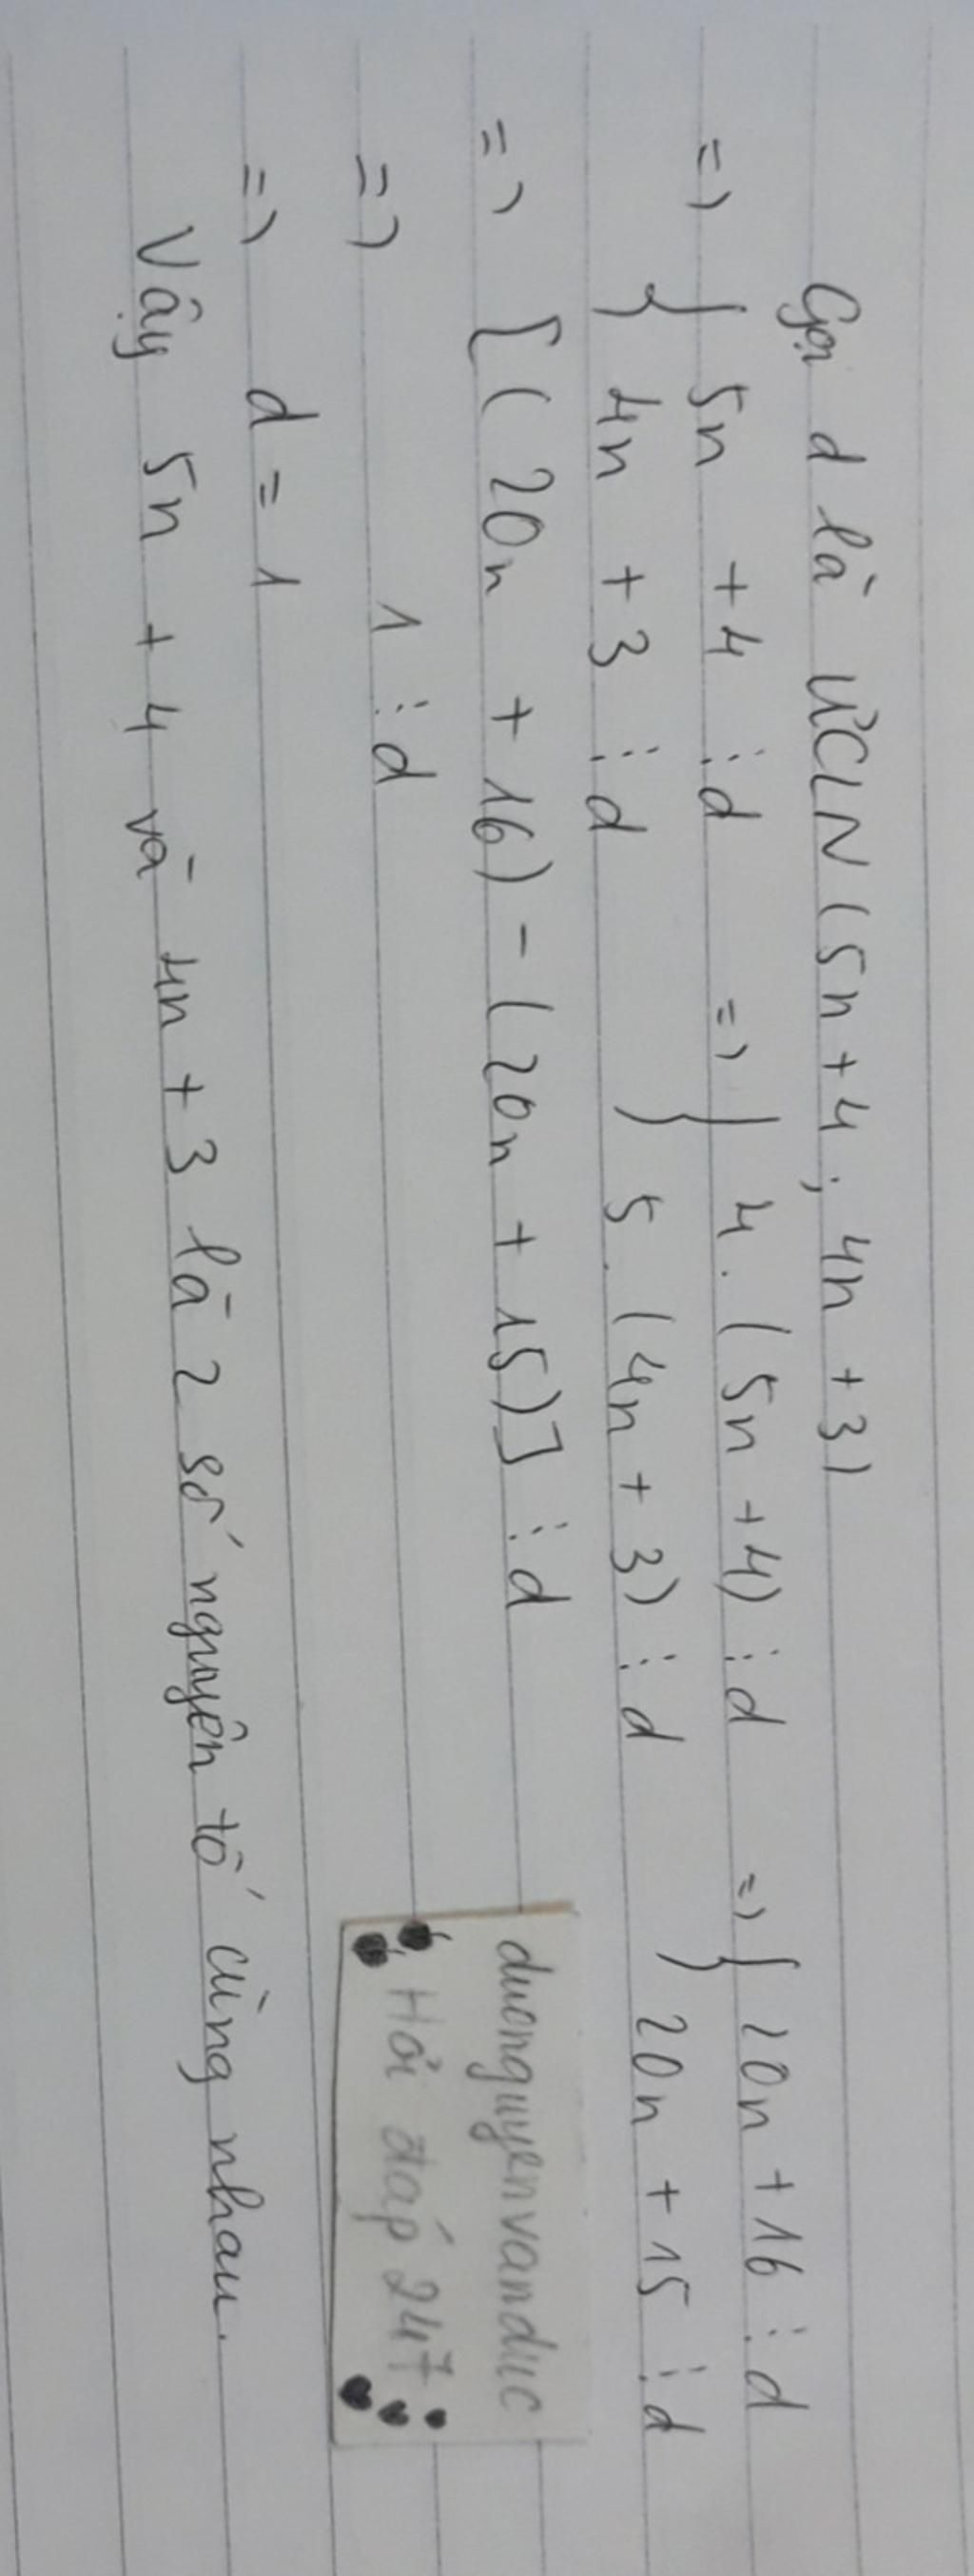 Gọi d là ƯCLN (5n + 4 ; 4n + 3)
=> { 5n + 4 ⋮ d => { 4 . (5n + 4) ⋮ d => { 20n + 16 ⋮ d
4n + 3 ⋮ d 5 . (4n + 3) ⋮ d 20n + 15 ⋮ d
=> [(20n + 16) - (20n + 15)] ⋮ d
=> 1 ⋮ d
=> d = 1
Vậy 5n + 4 và 4n + 3 là 2 số nguyên tố cùng nhau.
duonguyenvanduc
Hỏi đáp 247